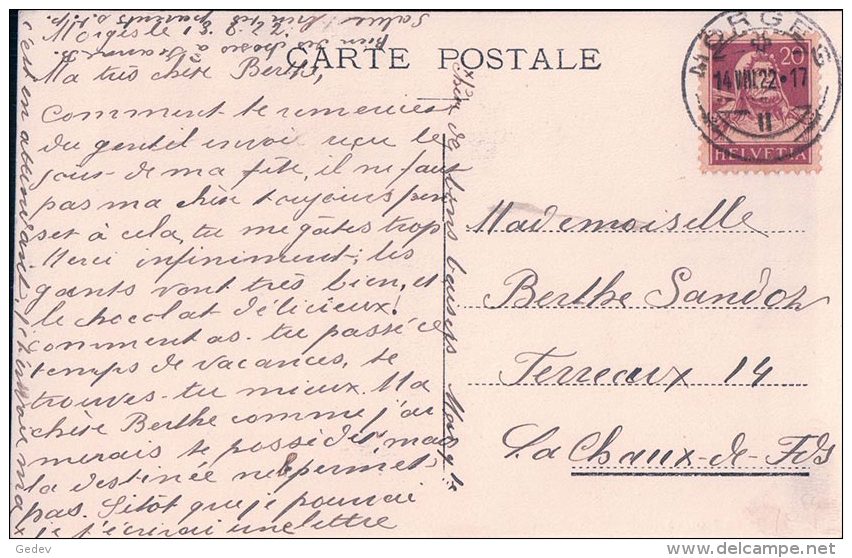 Morges le 13.8.22.
Ma très chère Berthe,
Comment te remercier
du gentil envoi reçu le
jour de ma fête, il ne faut
pas ma chère toujours pen
ser à cela, tu me gâtes trop
Merci infiniment; les
gants vont très bien, et
le chocolat délicieux!
Comment as-tu passé le
temps de vacances, te
trouves-tu mieux. Ma
chère Berthe comme j'ai
merais te posséder mais
la destinée ne permet
pas. Sitôt que je pourrai
je t'écrirai une lettre
c'est en attendant
bien des choses à
parents s.t.p.
bien de bons baisers
CARTE POSTALE
MORGES
14.VIII.22.17
II
20
HELVETIA
Mademoiselle
Berthe Sandoz
Terreaux 14
La Chaux-de-Fds
Gedev
delcampe.net